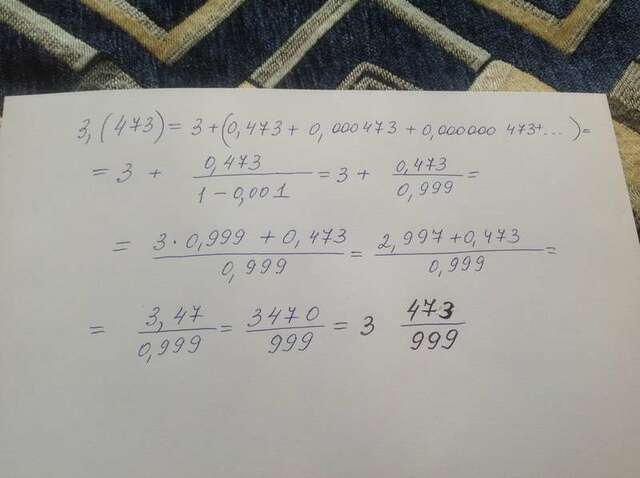 3,(473) = 3 + (0,473 + 0,000473 + 0,000000 473+...) =
= 3 + 0,473 / 1 - 0,001 = 3 + 0,473 / 0,999 =
= 3 · 0,999 + 0,473 / 0,999 = 2,997 + 0,473 / 0,999 =
= 3,47 / 0,999 = 3470 / 999 = 3 473 / 999